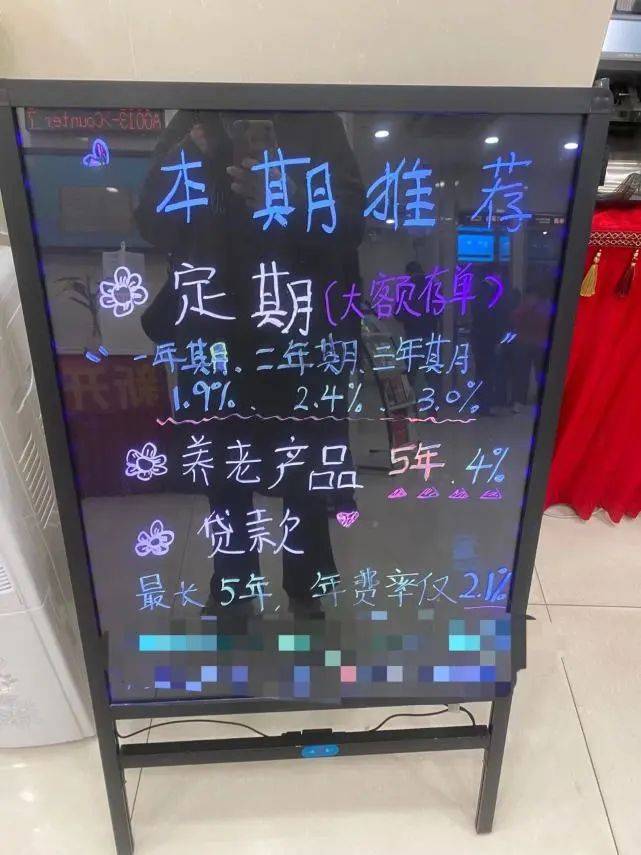 A0013-/Counter 7
本期推荐
定期(大额存单)
"一年期、二年期、三年期"
1.9%、2.4%、3.0%
养老产品 5年、4%
贷款
最长5年, 年费率仅2.1%
新开